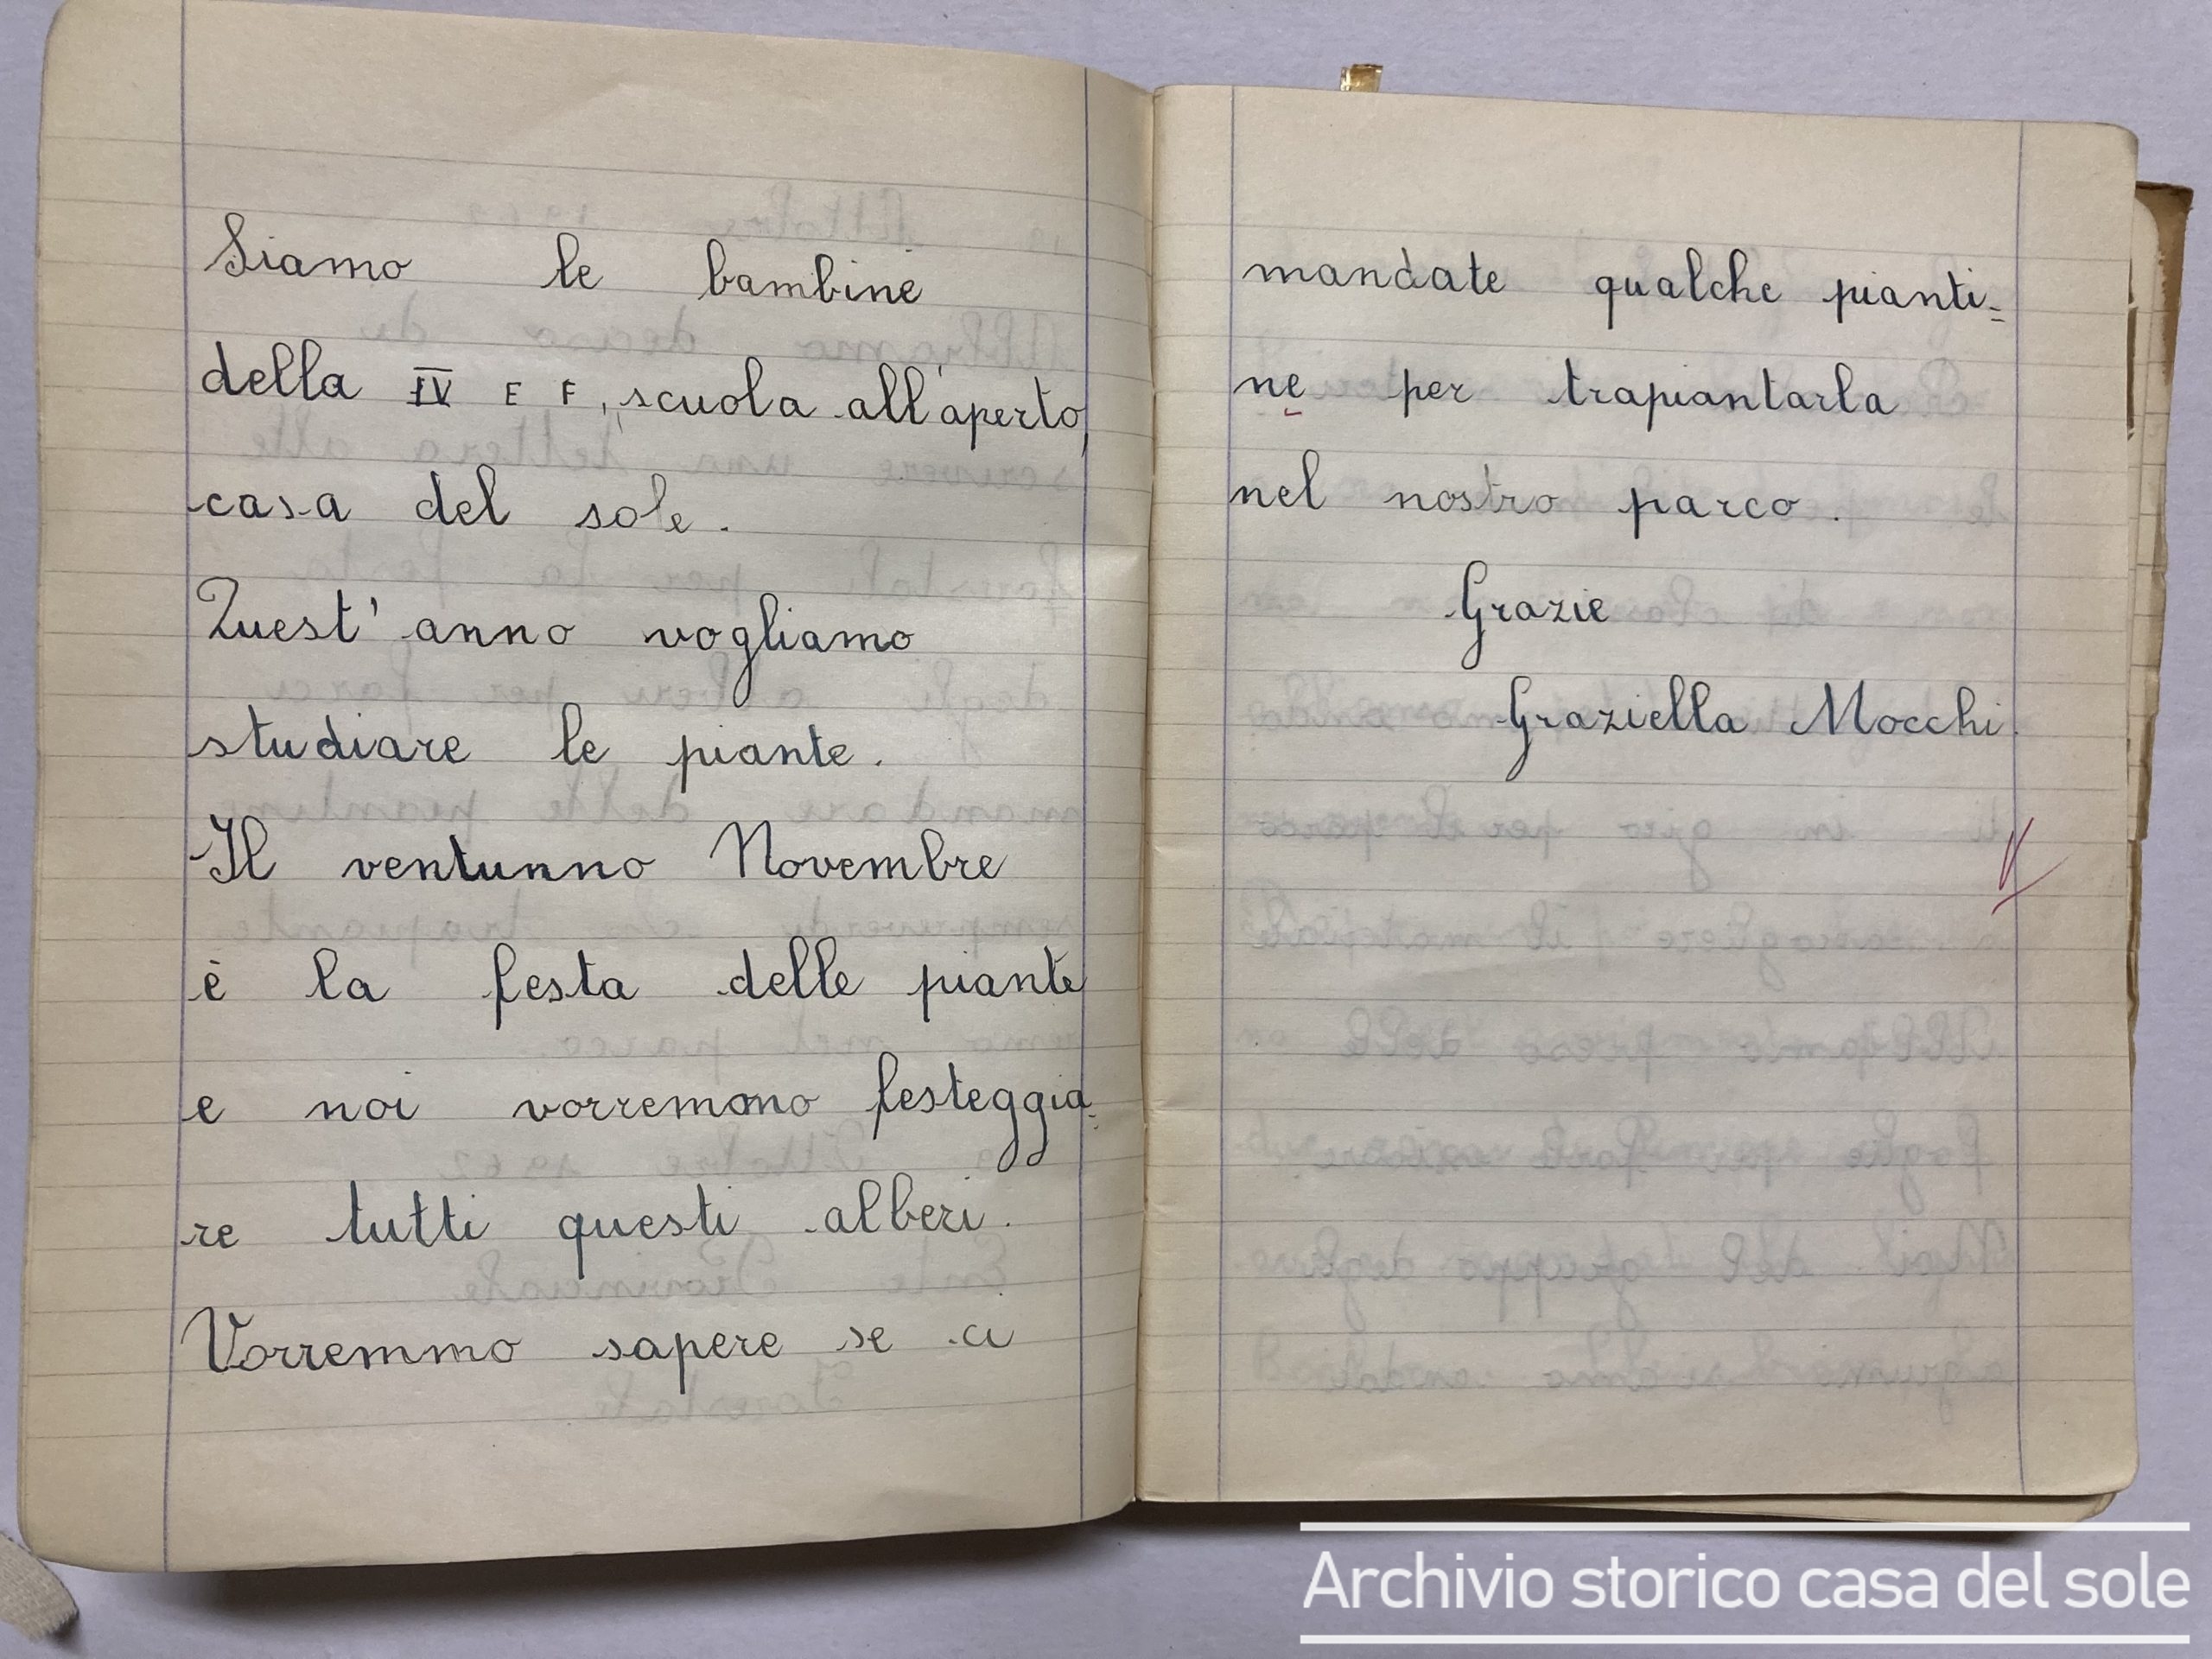 Siamo le bambine
della IV E F, scuola all'aperto,
casa del sole.
Quest' anno vogliamo
studiare le piante.
Il ventunno Novembre
è la festa delle piante
e noi vorremono festeggia-
re tutti questi alberi.
Vorremmo sapere se ci
mandate qualche pianti-
ne per trapiantarla
nel nostro parco.
Grazie
Graziella Mocchi.
Archivio storico casa del sole